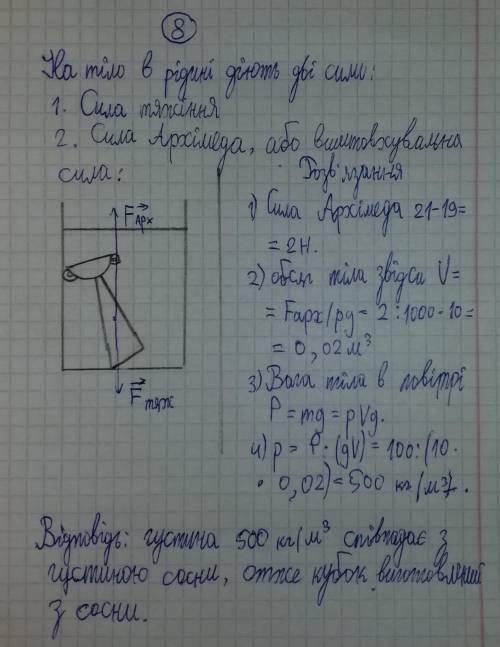 8
На тіло в рідині діють дві сили:
1. Сила тяжіння
2. Сила Архімеда, або виштовхувальна
сила:
Розв'язання
Fарх
Fтяж
1) Сила Архімеда 21-19=
= 2Н.
2) обсяг тіла звідси V=
= Fарх/ρg = 2:1000·10=
= 0,02 м³
3) Вага тіла в повітрі
P = mg = ρVg.
4) ρ = P·(gV) = 100:(10·
· 0,02) = 500 кг/м³.
Відповідь: густина 500 кг/м³ співпадає з
густиною сосни, отже кубок виготовлений
з сосни.